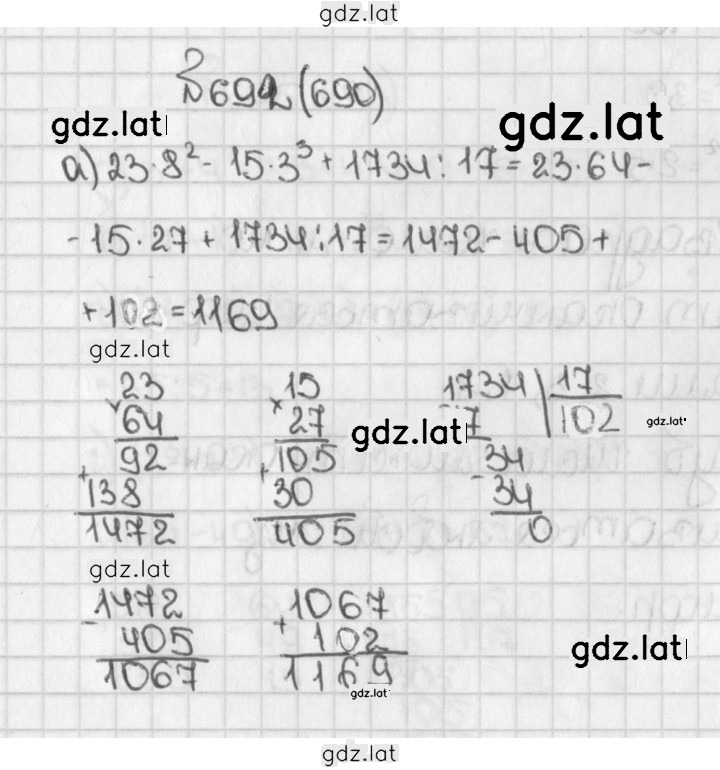 gdz.lat
№ 692 (690)
gdz.lat gdz.lat
а) 23·8² - 15·3³ + 1734 : 17 = 23·64 -
- 15·27 + 1734 : 17 = 1472 - 405 +
+ 102 = 1169
gdz.lat
23 15 1734 | 17
× 64 × 27 gdz.lat - 17 102 gdz.lat
92 105 34
+ 138 + 30 - 34
1472 405 0
gdz.lat
1472 1067
- 405 + 102 gdz.lat
1067 1169
gdz.lat
gdz.lat